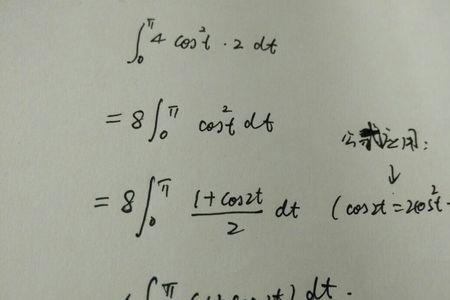 ∫₀^π 4 cos²t · 2 dt
= 8 ∫₀^π cos²t dt
公式应用:
↓
= 8 ∫₀^π (1+cos2t)/2 dt (cos2t = 2cos²t -
∫₀^π dt.